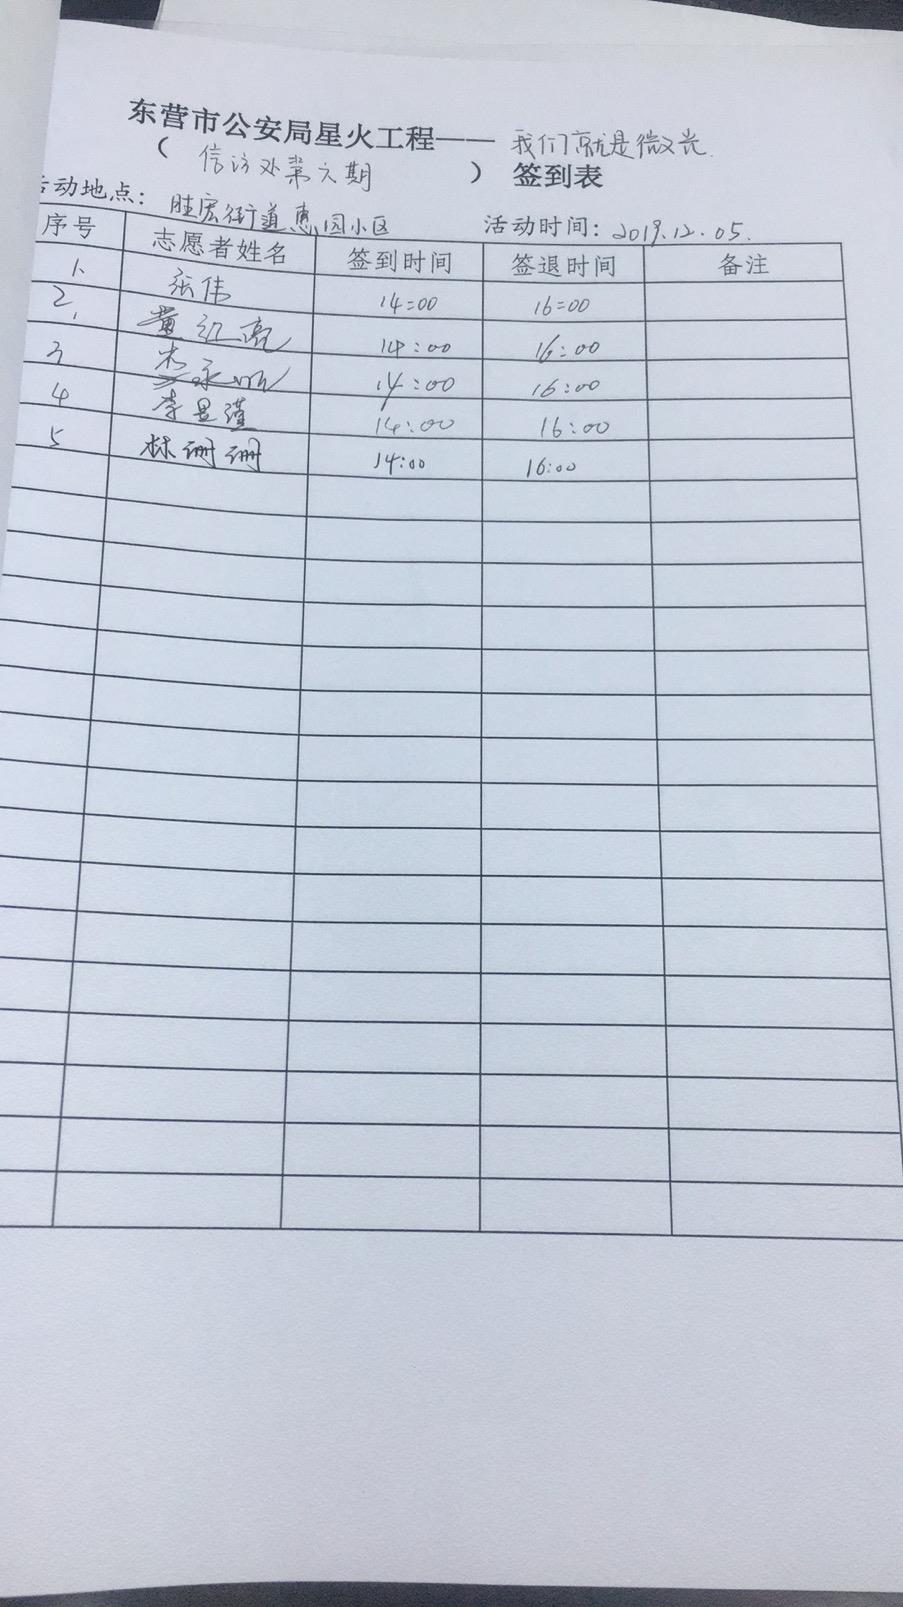 东营市公安局星火工程—— 我们就是微光
( 信访处第六期 ) 签到表
活动地点： 胜宏街道惠园小区 活动时间：2019.12.05.
序号 志愿者姓名 签到时间 签退时间 备注
1、 张伟 14:00 16:00
2、 黄红亮 14:00 16:00
3 14:00 16:00
4 李昱瑾 14:00 16:00
5 林珊珊 14:00 16:00